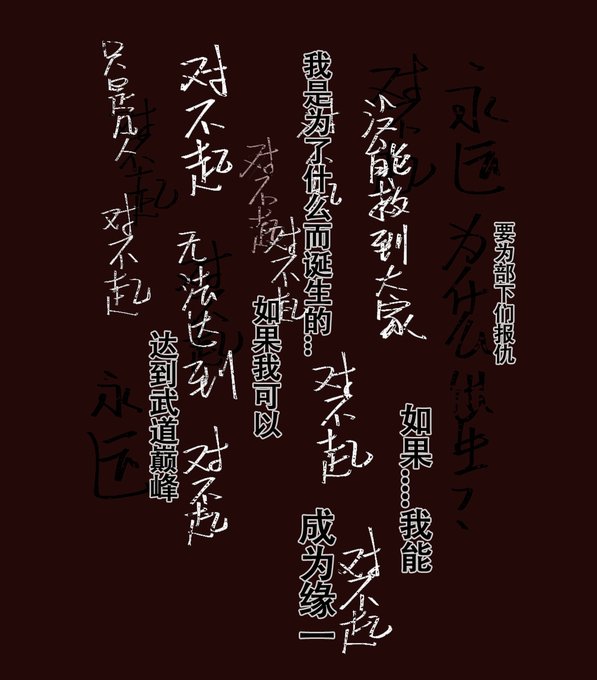 永远
为什么
要为部下们报仇
对不起
没能救到大家
如果……我能
我是为了什么而诞生的…
对不起
对不起
成为缘一
对不起
对不起
如果我可以
对不起
无法达到
对不起
达到武道巅峰
只是凡人
对不起
对不起
永远